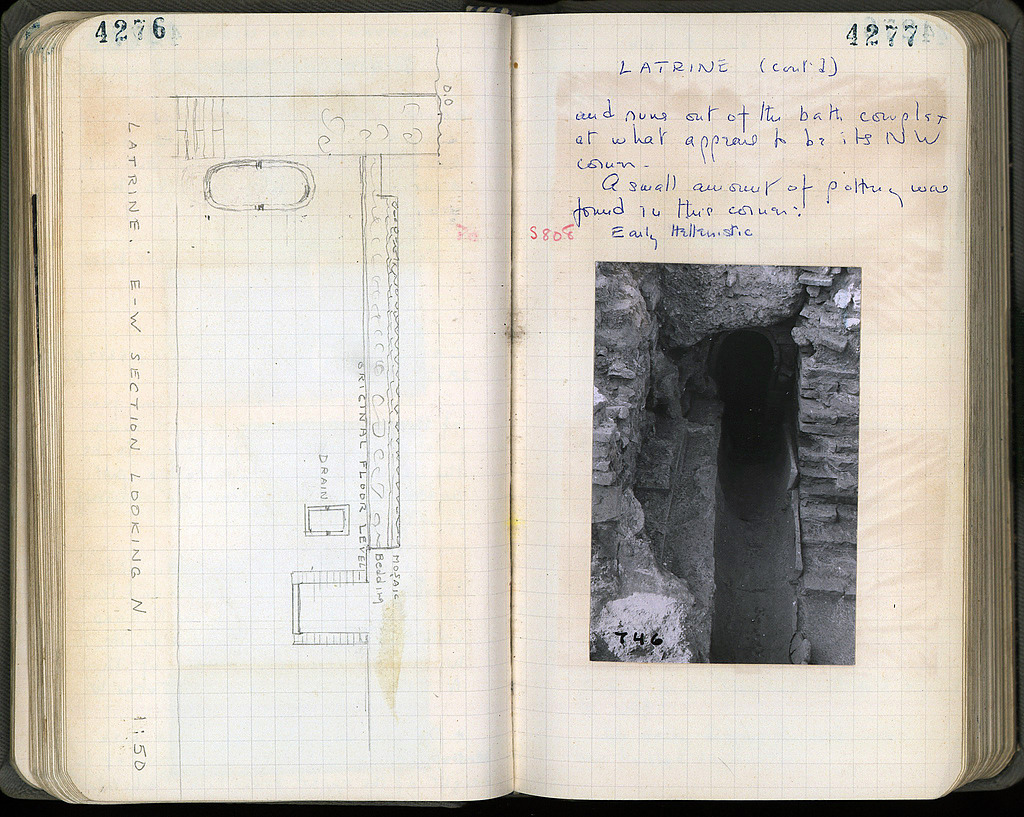 4276
D.O
LATRINE. E-W SECTION LOOKING N.
1:50
ORIGINAL FLOOR LEVEL
DRAIN
MOSAIC
Bedding
4277
LATRINE (cont'd)
and runs out of the bath complex
at what appears to be its NW
corner.
A small amount of pottery was
found in this corner:
Early Hellenistic
T46